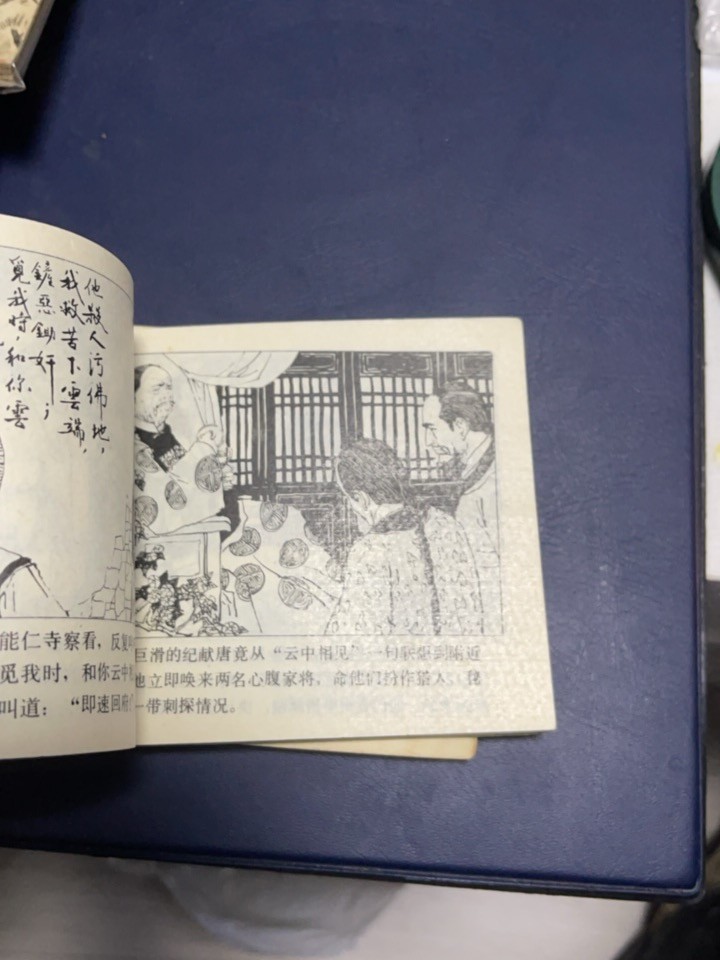 他殺人污佛地，
我救苦下雲端，
鏟惡鋤奸；
覓我時，和你雲
能仁寺察看，反复
觅我时，和你云中
叫道：“即速回府
巨滑的纪献唐竟从“云中相见”一句联想到附近
他立即唤来两名心腹家将，命他们扮作猎人，
一带刺探情况。